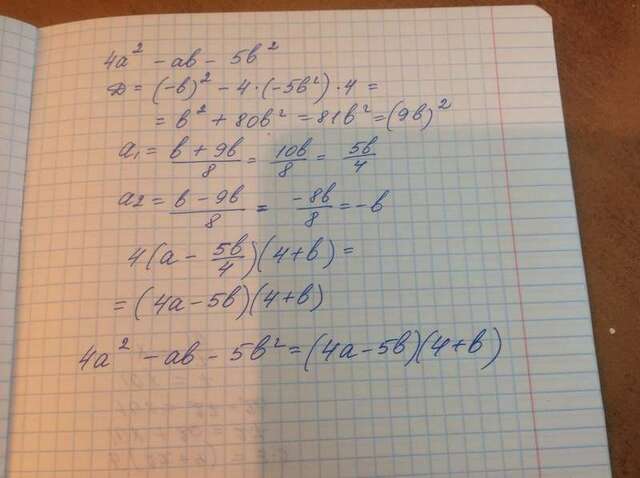 4a² - ab - 5b²
D = (-b)² - 4·(-5b²)·4 =
= b² + 80b² = 81b² = (9b)²
a₁ = (b + 9b)/8 = 10b/8 = 5b/4
a₂ = (b - 9b)/8 = -8b/8 = -b
4(a - 5b/4)(4+b) =
= (4a - 5b)(4+b)
4a² - ab - 5b² = (4a - 5b)(4+b)